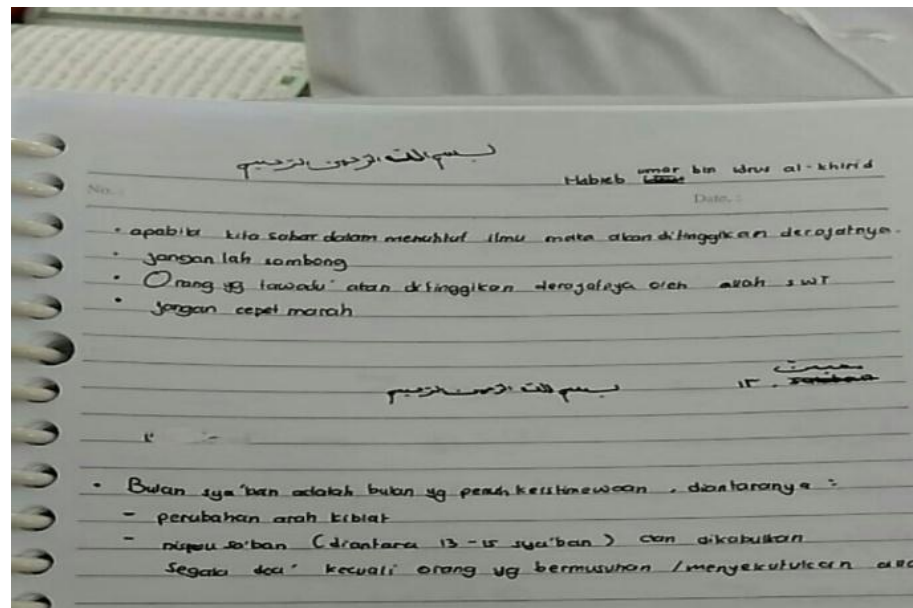 بسم الله الرحمن الرحيم
Habieb umar bin idrus al-khirid
No. :
Date. :
• apabila kita sabar dalam menuntut ilmu maka akan ditinggikan derajatnya.
• jangan lah sombong
• Orang yg tawadu' akan ditinggikan derajatnya oleh allah SWT
• jangan cepet marah
بسم الله الرحمن الرحيم
١٢ .
• Bulan sya'ban adalah bulan yg penuh keistimewaan , diantaranya :
- perubahan arah kiblat
- nispu sa'ban (diantara 13-15 sya'ban) dan dikabulkan
segala doa' kecuali orang yg bermusuhan / menyekutukan